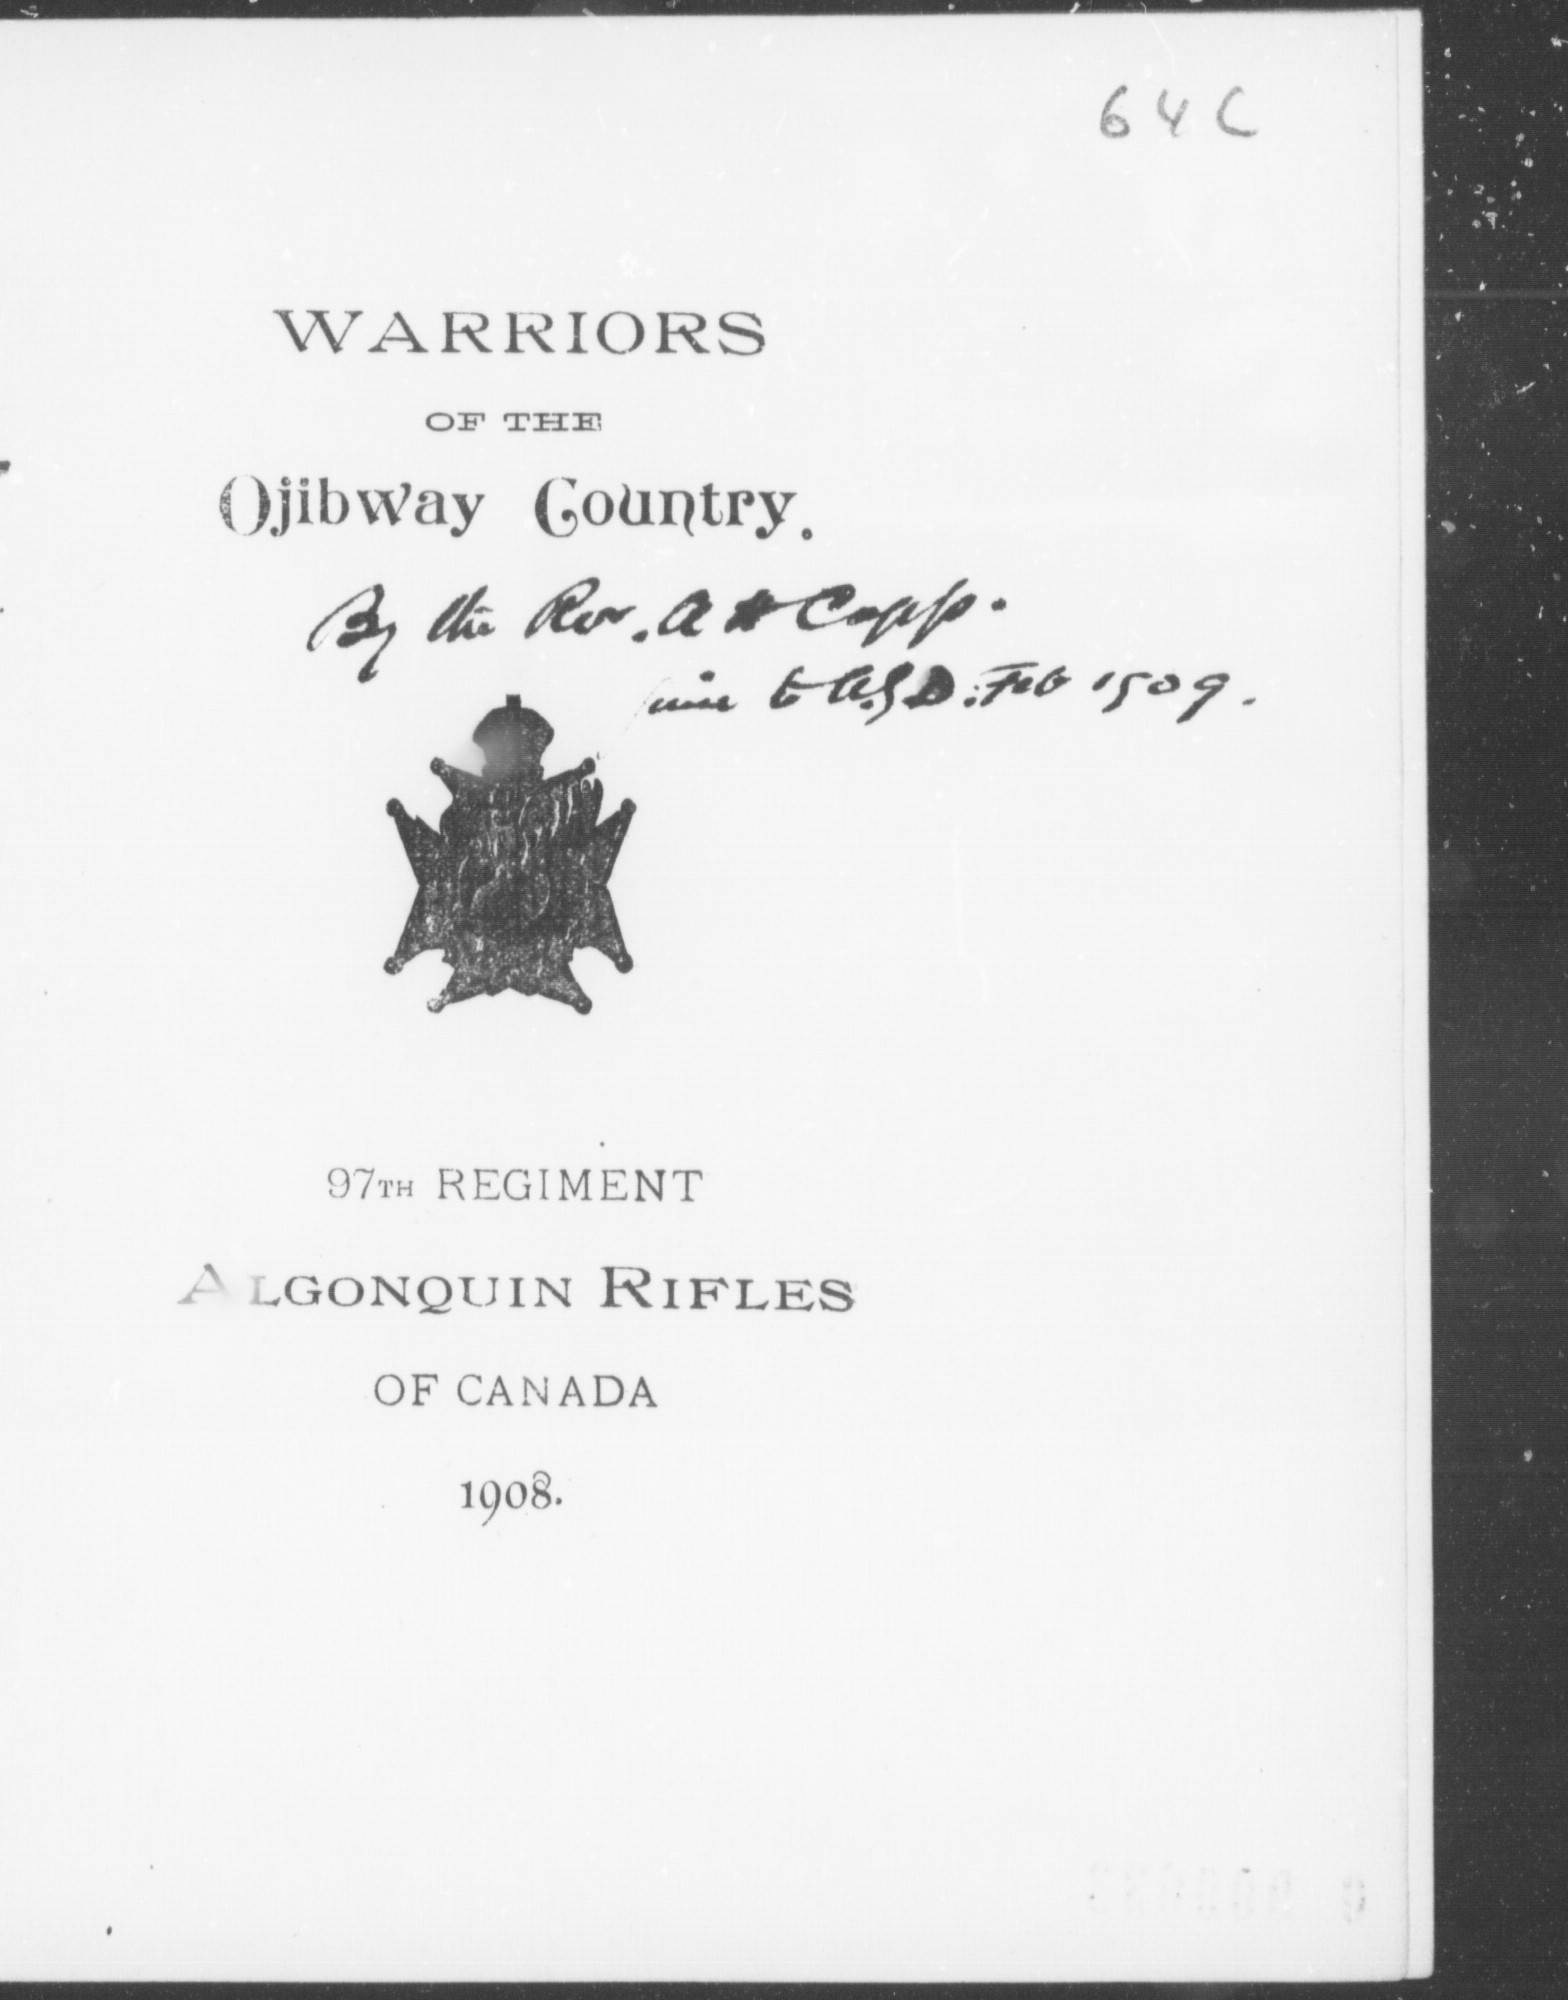 64C
WARRIORS
OF THE
Ojibway Country.
By the Rev. A H Capp.
to A.G.D. Feb 1909.
97TH REGIMENT
ALGONQUIN RIFLES
OF CANADA
1908.